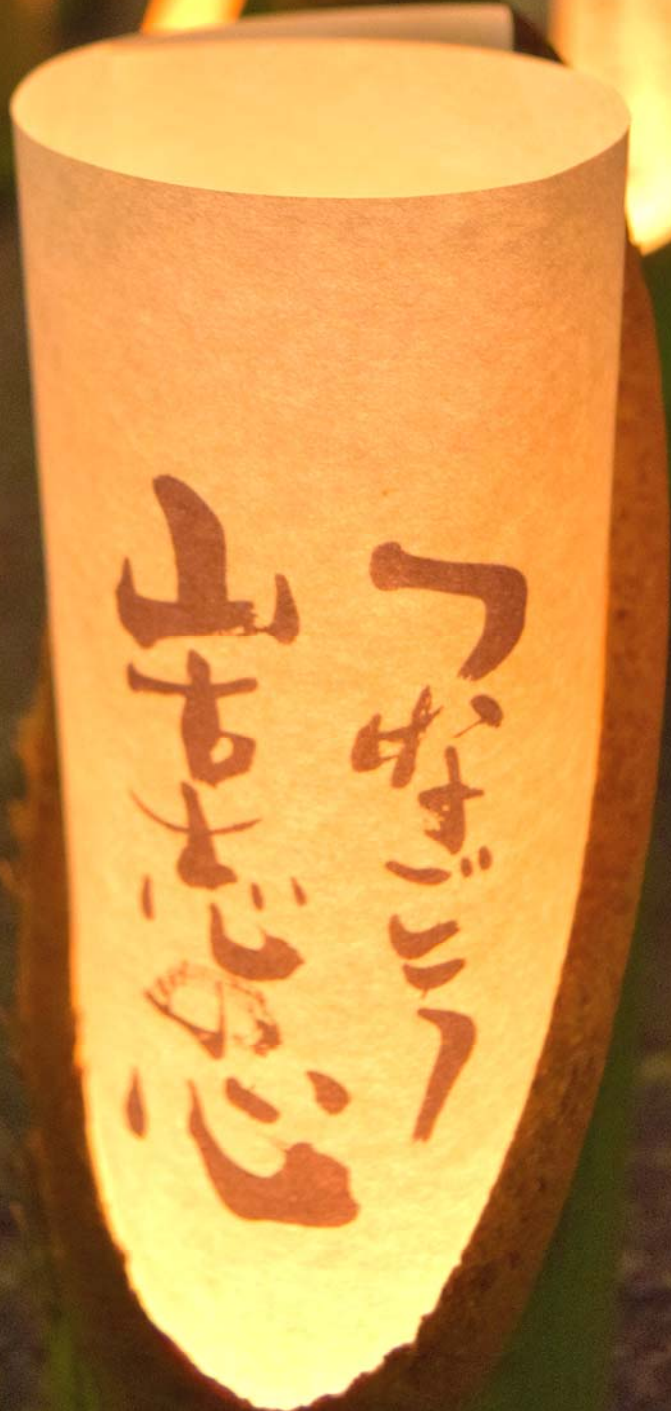 つなごう
山古志の心